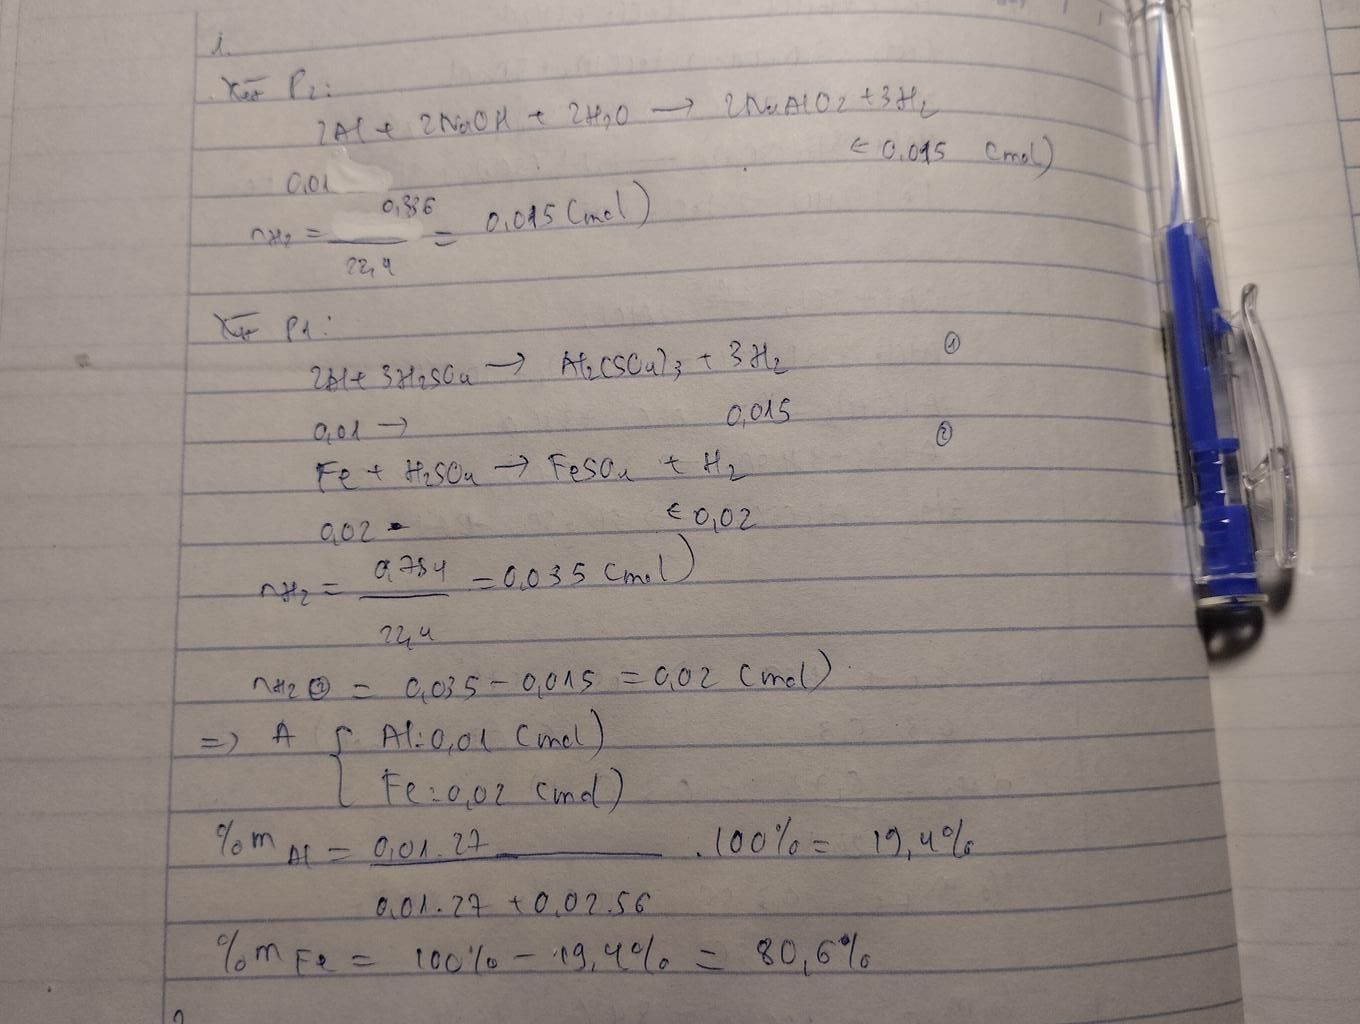 1.
Xét P2:
2Al + 2NaOH + 2H2O → 2NaAlO2 + 3H2
0,01 ← 0,015 (mol)
nH2 = 0,336 / 22,4 = 0,015 (mol)
Xét P1:
2Al + 3H2SO4 → Al2(SO4)3 + 3H2 ①
0,01 → 0,015
Fe + H2SO4 → FeSO4 + H2 ②
0,02 ← 0,02
nH2 = 0,784 / 22,4 = 0,035 (mol)
nH2 ② = 0,035 - 0,015 = 0,02 (mol)
=> A { Al: 0,01 (mol)
Fe: 0,02 (mol)
%m Al = 0,01.27 / 0,01.27 + 0,02.56 .100% = 19,4%
%m Fe = 100% - 19,4% = 80,6%